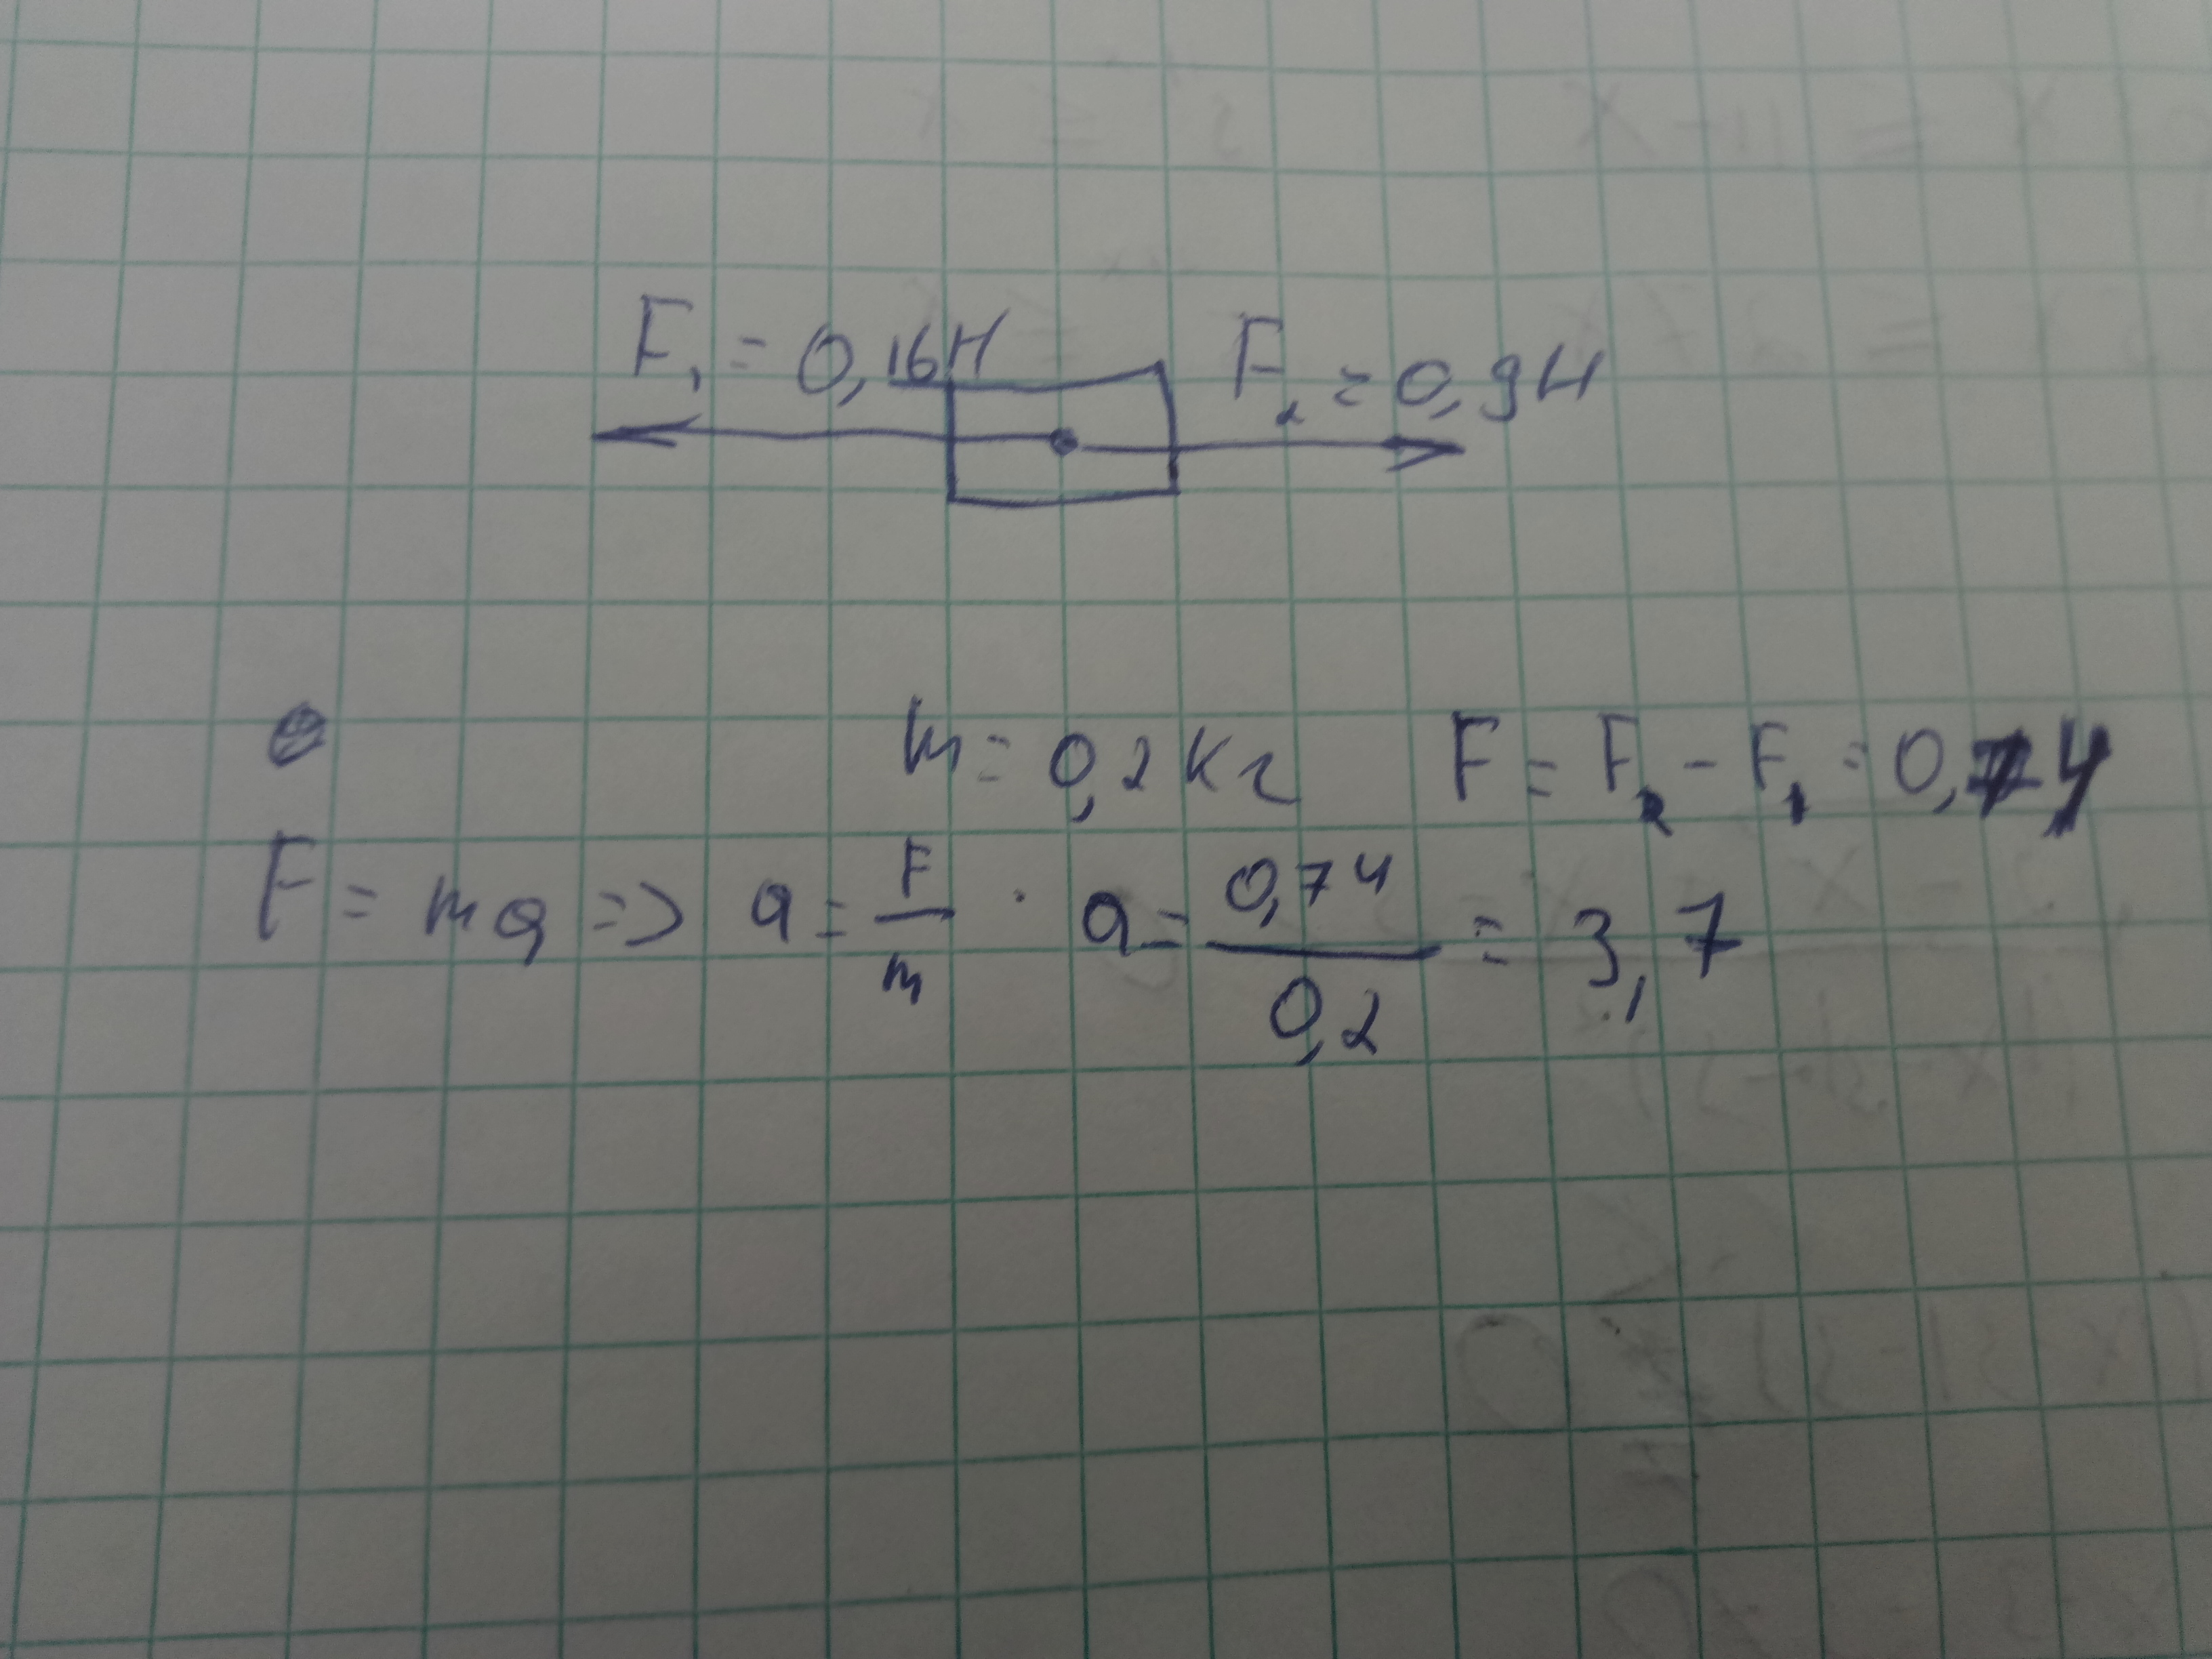 F₁ = 0,16Н F₂ = 0,9Н
m = 0,2 кг F = F₂ - F₁ = 0,74
F = ma => a = F/m . a = 0,74/0,2 = 3,7